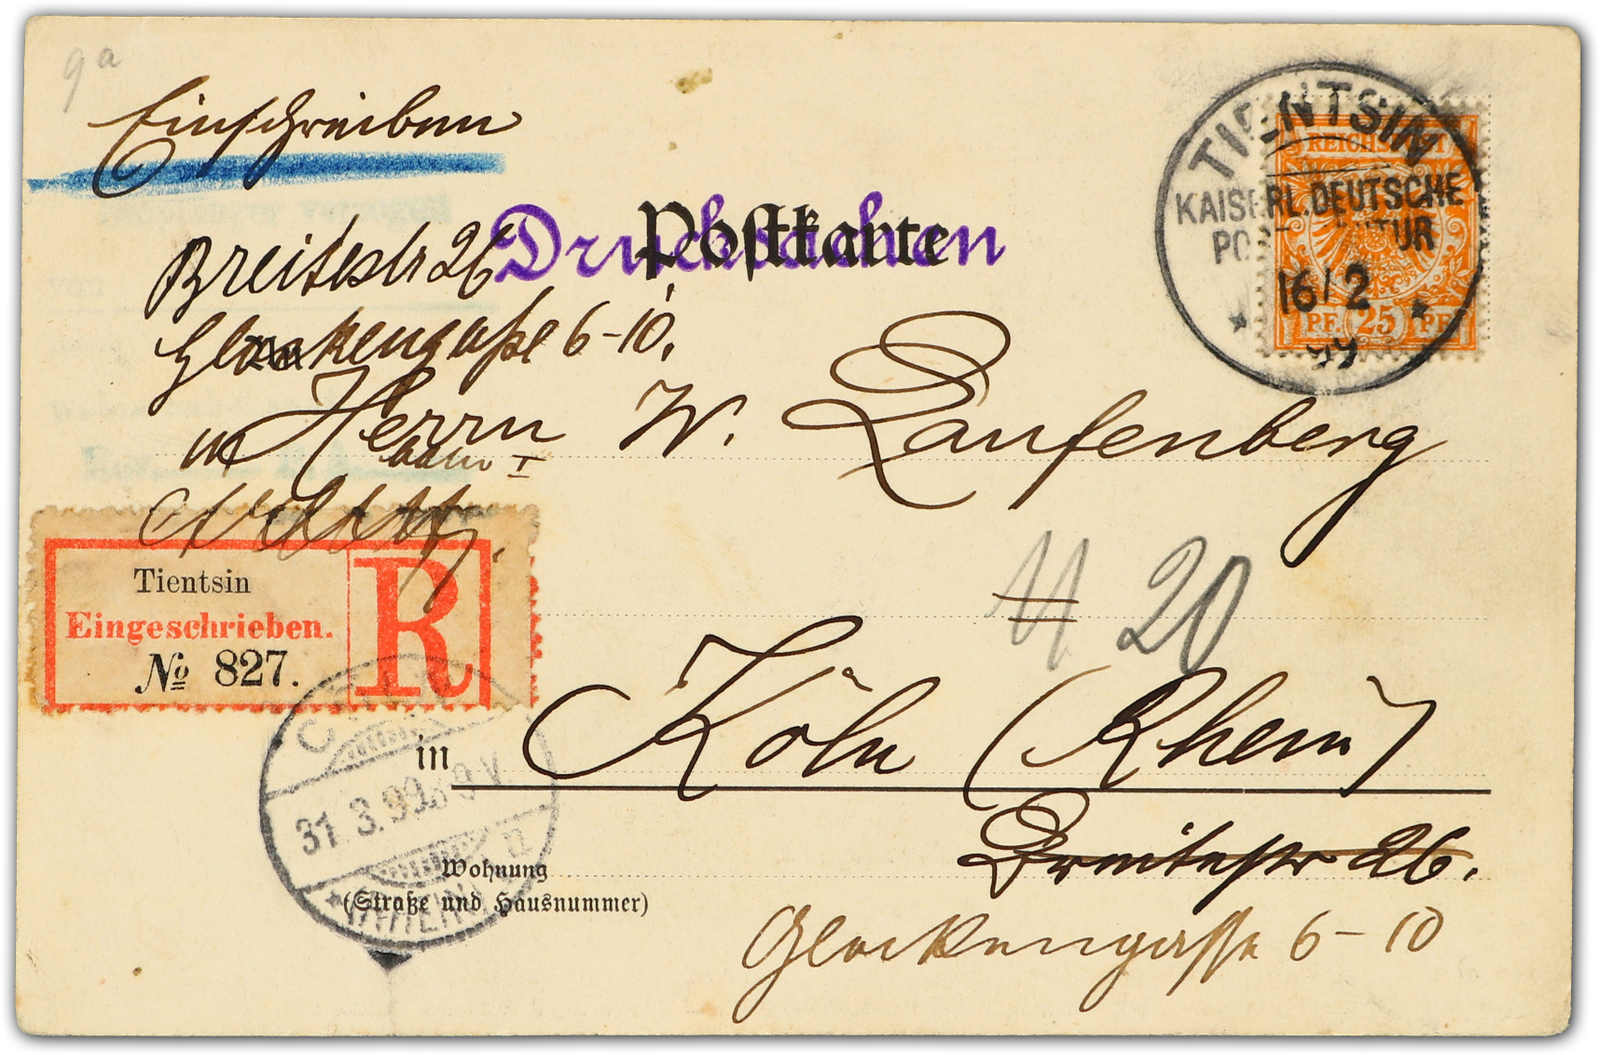 9a
Einschreiben
Drucksachen
Postkarte
TIENTSIN
REICHSPOST
KAISERL. DEUTSCHE
16/2
99
PF. 25 PF
Breitestr 26
Glockengaße 6-10.
Herrn W. Laufenberg
Tientsin
Eingeschrieben.
№ 827.
R
20
in Köln (Rhein)
31.3.99.
Breitestr 26.
Wohnung
(Straße und Hausnummer)
Glockengasse 6-10